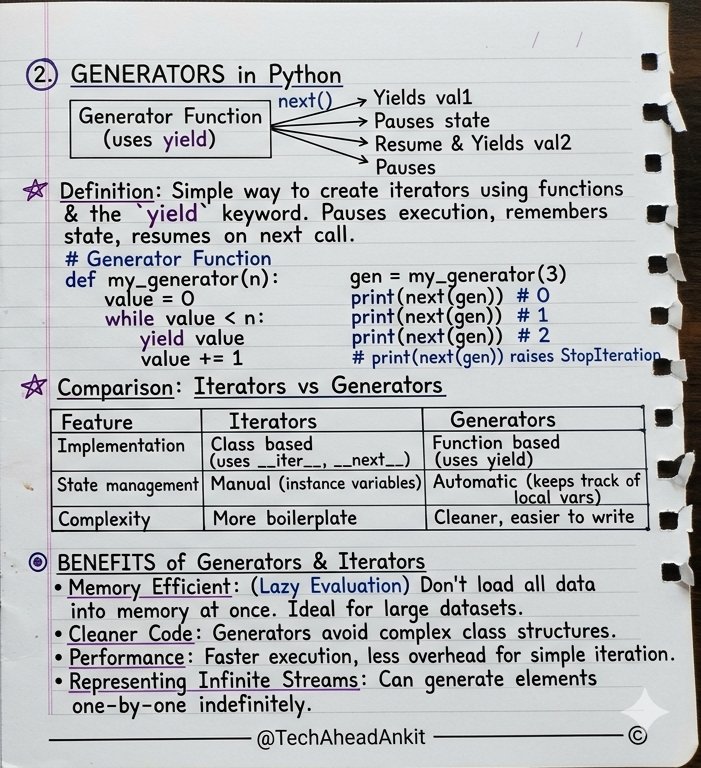 2. GENERATORS in Python
Generator Function
(uses yield)
next()
Yields val1
Pauses state
Resume & Yields val2
Pauses
Definition: Simple way to create iterators using functions
& the `yield` keyword. Pauses execution, remembers
state, resumes on next call.
# Generator Function
def my_generator(n):
value = 0
while value < n:
yield value
value += 1
gen = my_generator(3)
print(next(gen)) # 0
print(next(gen)) # 1
print(next(gen)) # 2
# print(next(gen)) raises StopIteration
Comparison: Iterators vs Generators
Feature Iterators Generators
Implementation Class based Function based
(uses __iter__, __next__) (uses yield)
State management Manual (instance variables) Automatic (keeps track of
local vars)
Complexity More boilerplate Cleaner, easier to write
BENEFITS of Generators & Iterators
• Memory Efficient: (Lazy Evaluation) Don't load all data
into memory at once. Ideal for large datasets.
• Cleaner Code: Generators avoid complex class structures.
• Performance: Faster execution, less overhead for simple iteration.
• Representing Infinite Streams: Can generate elements
one-by-one indefinitely.
@TechAheadAnkit ©